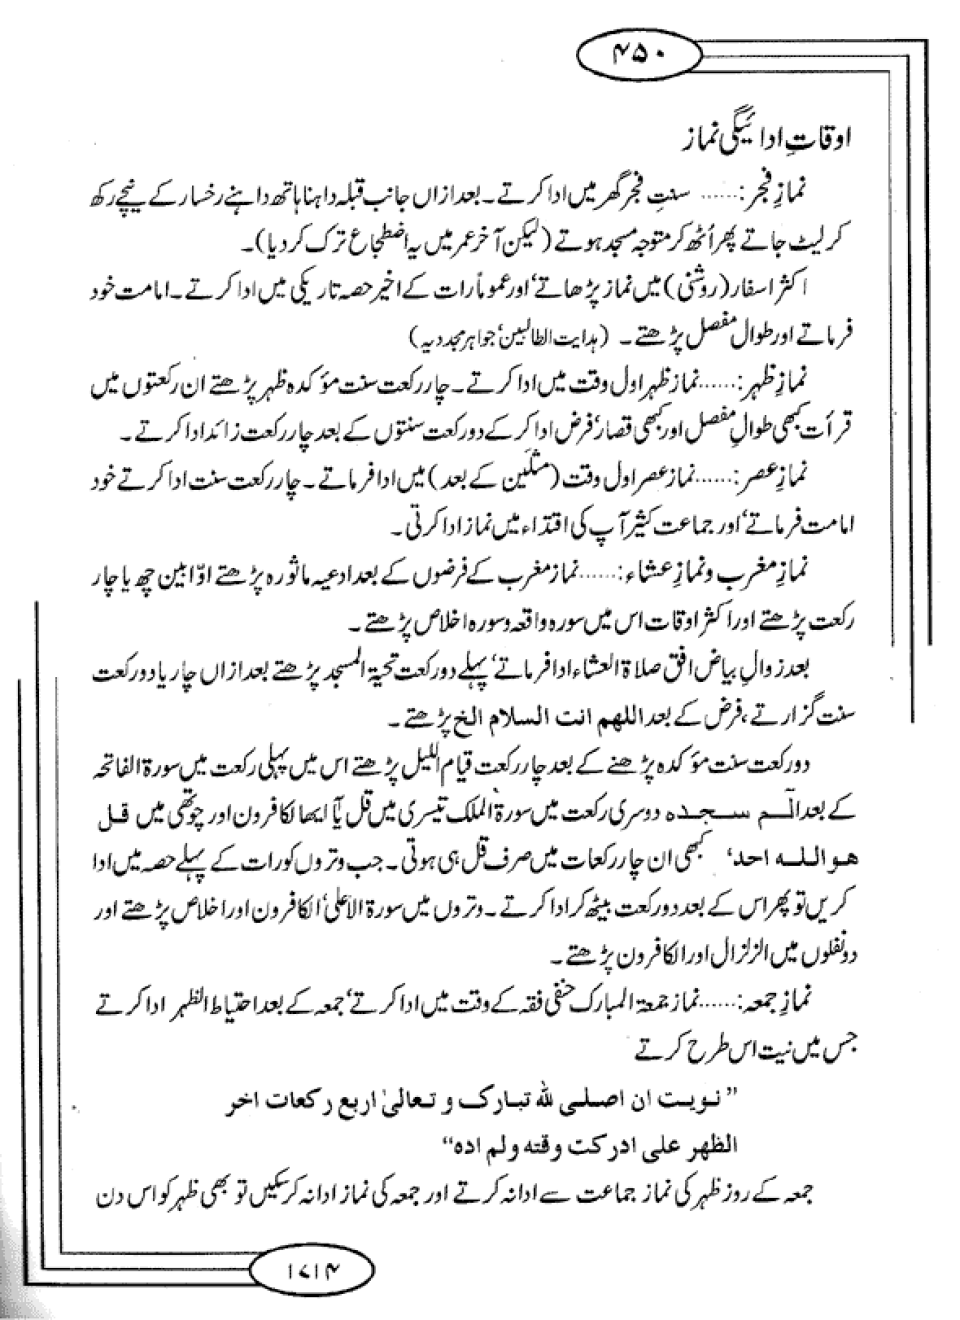 ۴۵۰
اوقاتِ ادائیگی نماز
نمازِ فجر:...... سنتِ فجر گھر میں ادا کرتے۔ بعد ازاں جانب قبلہ داہنا ہاتھ داہنے رخسار کے نیچے رکھ
کر لیٹ جاتے پھر اُٹھ کر متوجہ مسجد ہوتے (لیکن آخر عمر میں یہ اضطجاع ترک کر دیا)۔
اکثر اسفار (روشنی) میں نماز پڑھاتے‘ اور عموماً رات کے اخیر حصہ تاریکی میں ادا کرتے۔ امامت خود
فرماتے اور طوال مفصل پڑھتے۔ (ہدایت الطالبین‘ جواہر مجددیہ)
نمازِ ظہر:...... نماز ظہر اول وقت میں ادا کرتے۔ چار رکعت سنت مؤکدہ ظہر پڑھتے ان رکعتوں میں
قرأت کبھی طوالِ مفصل اور کبھی قصار‘ فرض ادا کر کے دو رکعت سنتوں کے بعد چار رکعت زائد ادا کرتے۔
نمازِ عصر:...... نماز عصر اول وقت (مثلین کے بعد) میں ادا فرماتے۔ چار رکعت سنت ادا کرتے خود
امامت فرماتے‘ اور جماعت کثیر آپ کی اقتداء میں نماز ادا کرتی۔
نمازِ مغرب و نمازِ عشاء:...... نماز مغرب کے فرضوں کے بعد ادعیہ ماثورہ پڑھتے اوّابین چھ یا چار
رکعت پڑھتے اور اکثر اوقات اس میں سورہ واقعہ و سورہ اخلاص پڑھتے۔
بعد زوالِ بیاض افق صلاۃ العشاء ادا فرماتے‘ پہلے دو رکعت تحیۃ المسجد پڑھتے بعد ازاں چار یا دو رکعت
سنت گزارتے، فرض کے بعد اللھم انت السلام الخ پڑھتے۔
دو رکعت سنت مؤکدہ پڑھنے کے بعد چار رکعت قیام اللیل پڑھتے اس میں پہلی رکعت میں سورۃ الفاتحہ
کے بعد الٓم سجدہ دوسری رکعت میں سورۃ الملک تیسری میں قل یٰٓا ایھا لکافرون اور چوتھی میں قل
ھو اللہ احد‘ کبھی ان چار رکعات میں صرف قل ہی ہوتی۔ جب وتروں کو رات کے پہلے حصہ میں ادا
کریں تو پھر اس کے بعد دو رکعت بیٹھ کر ادا کرتے۔ وتروں میں سورۃ الاعلیٰ‘ الکافرون اور اخلاص پڑھتے اور
دو نفلوں میں الزلزال اور الکافرون پڑھتے۔
نمازِ جمعہ:...... نماز جمعۃ المبارک حنفی فقہ کے وقت میں ادا کرتے‘ جمعہ کے بعد احتیاط الظہر ادا کرتے
جس میں نیت اس طرح کرتے
”نویت ان اصلی للہ تبارک و تعالیٰ اربع رکعات اخر
الظھر علی ادرکت وقتہ ولم ادہ“
جمعہ کے روز ظہر کی نماز جماعت سے ادا نہ کرتے اور جمعہ کی نماز ادا نہ کر سکیں تو بھی ظہر کو اس دن
۱۷۱۴